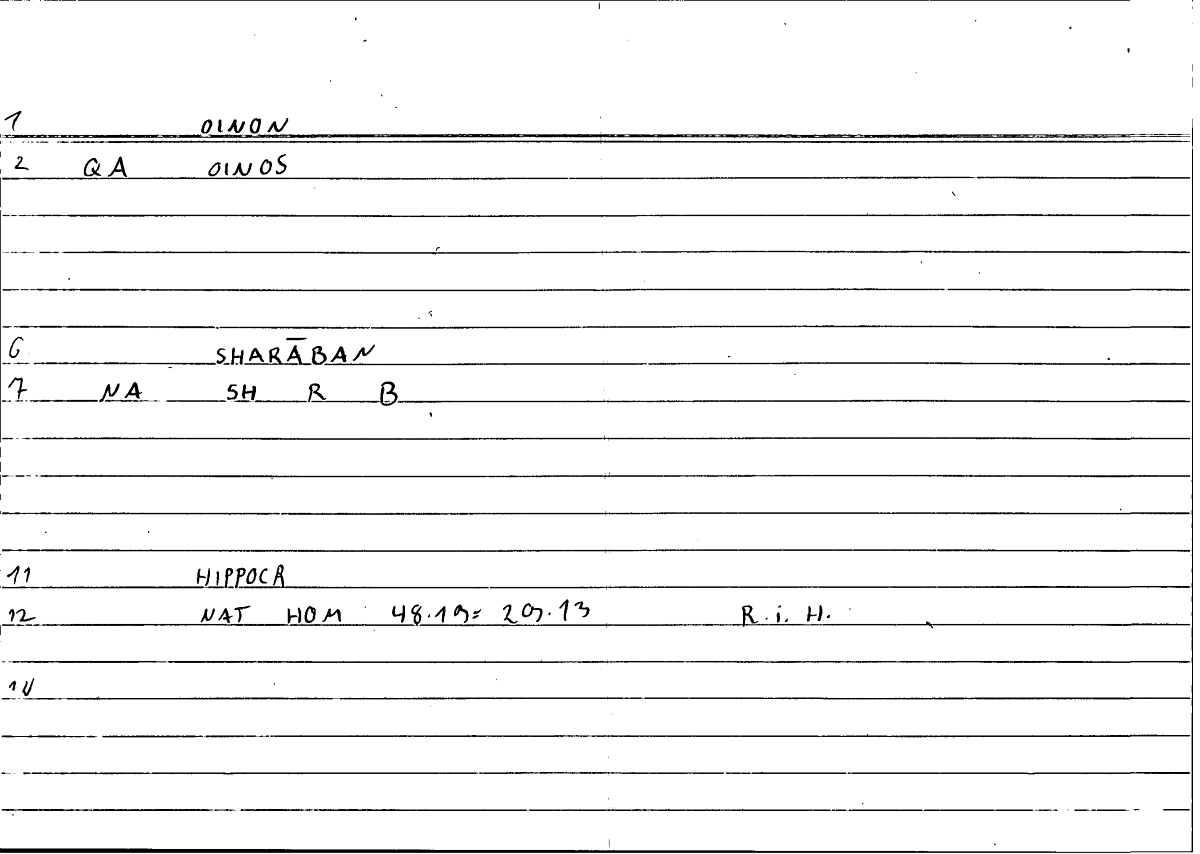 1 OINON
2 QA OINOS
6 SHARĀBAN
7 NA SH R B
11 HIPPOCR
12 NAT HOM 48.19= 20.13 R.i.H.
14